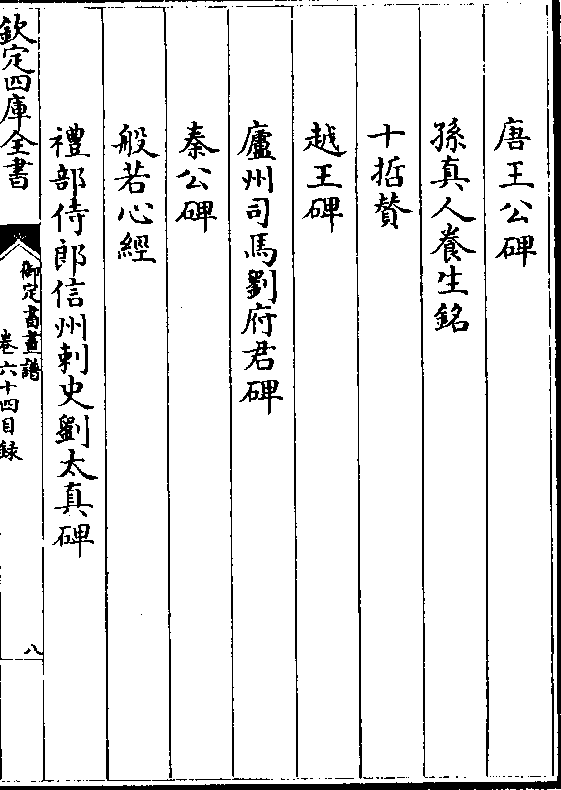 唐王公碑
孫真人養生銘
十哲賛
越王碑
廬州司馬劉府君碑
秦公碑
般若心經
禮部侍郎信州刺史劉太真碑
欽定四庫全書
御定書畫譜
卷六十四目録
八